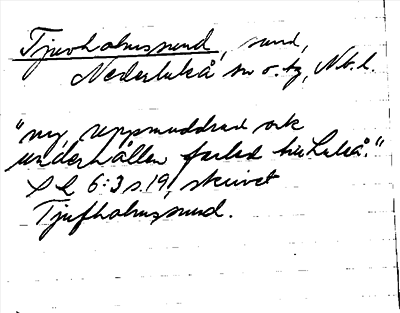 Tjuvholmssund, sund,
Nederluleå sn o. tg, Nb. l.
"ny, uppmuddrad och
underhållen farled till Luleå."
SL 6:3 s. 19, skrivet
Tjufholmssund.